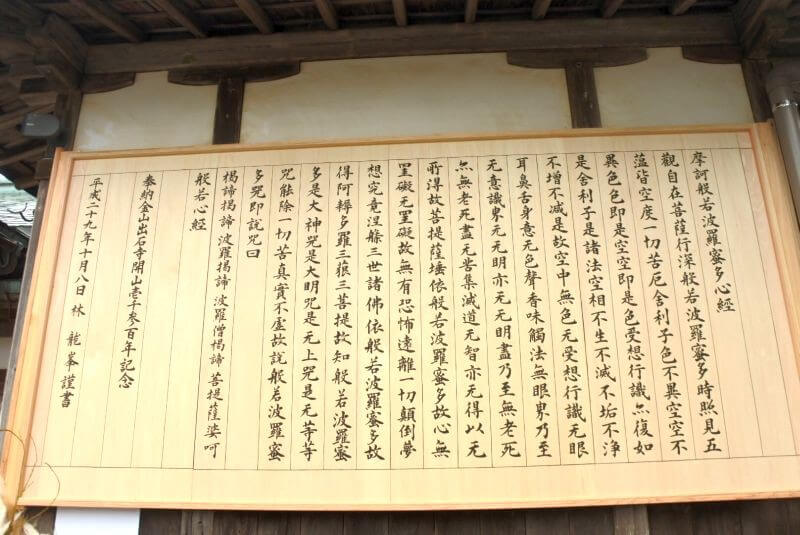 摩訶般若波羅蜜多心經
觀自在菩薩行深般若波羅蜜多時照見五
蘊皆空度一切苦厄舍利子色不異空空不
異色色即是空空即是色受想行識亦復如
是舍利子是諸法空相不生不滅不垢不浄
不增不減是故空中無色无受想行識无眼
耳鼻舌身意无色聲香味觸法無眼界乃至
无意識界无无明亦无无明盡乃至無老死
亦無老死盡无苦集滅道无智亦无得以无
所得故菩提薩埵依般若波羅蜜多故心無
罣礙无罣礙故無有恐怖遠離一切顛倒夢
想究竟涅槃三世諸佛依般若波羅蜜多故
得阿耨多羅三藐三菩提故知般若波羅蜜
多是大神咒是大明咒是无上咒是无等等
咒能除一切苦真實不虛故說般若波羅蜜
多咒即說咒曰
揭諦揭諦波羅揭諦波羅僧揭諦菩提薩婆呵
般若心經
奉納金山出石寺開山壱千参百年記念
平成二十九年十月八日林龍峯謹書